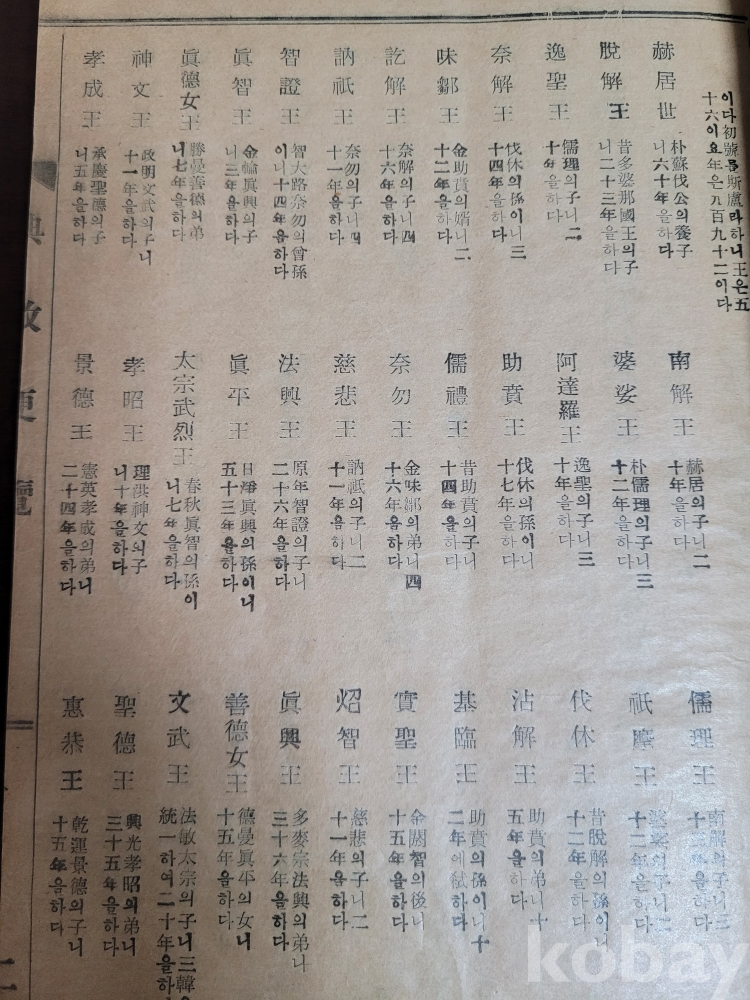 이다初號를斯盧라하니王은五
十六이요年은九百九十二이다
赫居世
朴蘇伐公의養子
니六十年을하다
南解王
赫居의子니二
十年을하다
儒理王
南解의子니三
脫解王
昔多婆那國王의子
니二十三年을하다
婆娑王
朴儒理의子니三
十二年을하다
祇摩王
婆娑의子니二
十二年을하다
逸聖王
儒理의子니二
十年을하다
阿達羅王
逸聖의子니三
十年을하다
伐休王
昔脫解의孫이니
十二年을하다
奈解王
伐休의孫이니三
十四年을하다
助賁王
伐休의孫이니
十七年을하다
沾解王
助賁의弟니十
五年을하다
味鄒王
金助賁의婿니二
十二年을하다
儒禮王
昔助賁의子니
十四年을하다
基臨王
助賁의孫이니十
二年에弑하다
訖解王
奈解의子니四
十六年을하다
奈勿王
金味鄒의弟니四
十六年을하다
實聖王
金閼智의後니
十五年을하다
訥祇王
奈勿의子니四
十一年을하다
慈悲王
訥祇의子니二
十一年을하다
炤智王
慈悲의子니二
十一年을하다
智證王
智大路奈勿의曾孫
이니十四年을하다
法興王
原年智證의子니
二十六年을하다
眞興王
多麥宗法興의弟니
三十六年을하다
眞智王
金輪眞興의子
니三年을하다
眞平王
日淨眞興의孫이니
五十三年을하다
善德女王
德曼眞平의女니
十五年을하다
眞德女王
勝曼善德의弟
니七年을하다
太宗武烈王
春秋眞智의孫이
니七年을하다
文武王
法敏太宗의子니三韓을
統一하여二十年을하다
神文王
政明文武의子니
十一年을하다
孝昭王
理洪神文의子
니十年을하다
聖德王
興光孝昭의弟니
三十五年을하다
孝成王
承慶聖德의子
니五年을하다
景德王
憲英孝成의弟니
二十四年을하다
惠恭王
乾運景德의子니
十五年을하다
覽
kobay